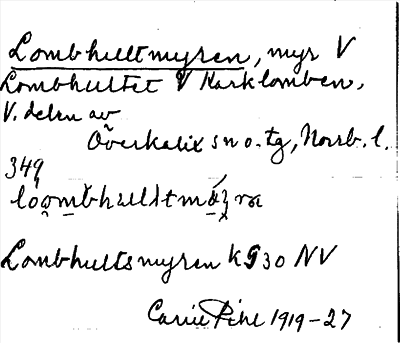 Lombhultmyren, myr V
Lombhultet V Karklomben,
V. delen av
Överkalix sn o. tg, Norrb. l.
349
Lombhultsmyren K 530 NV
Carrie Pihl 1919-27